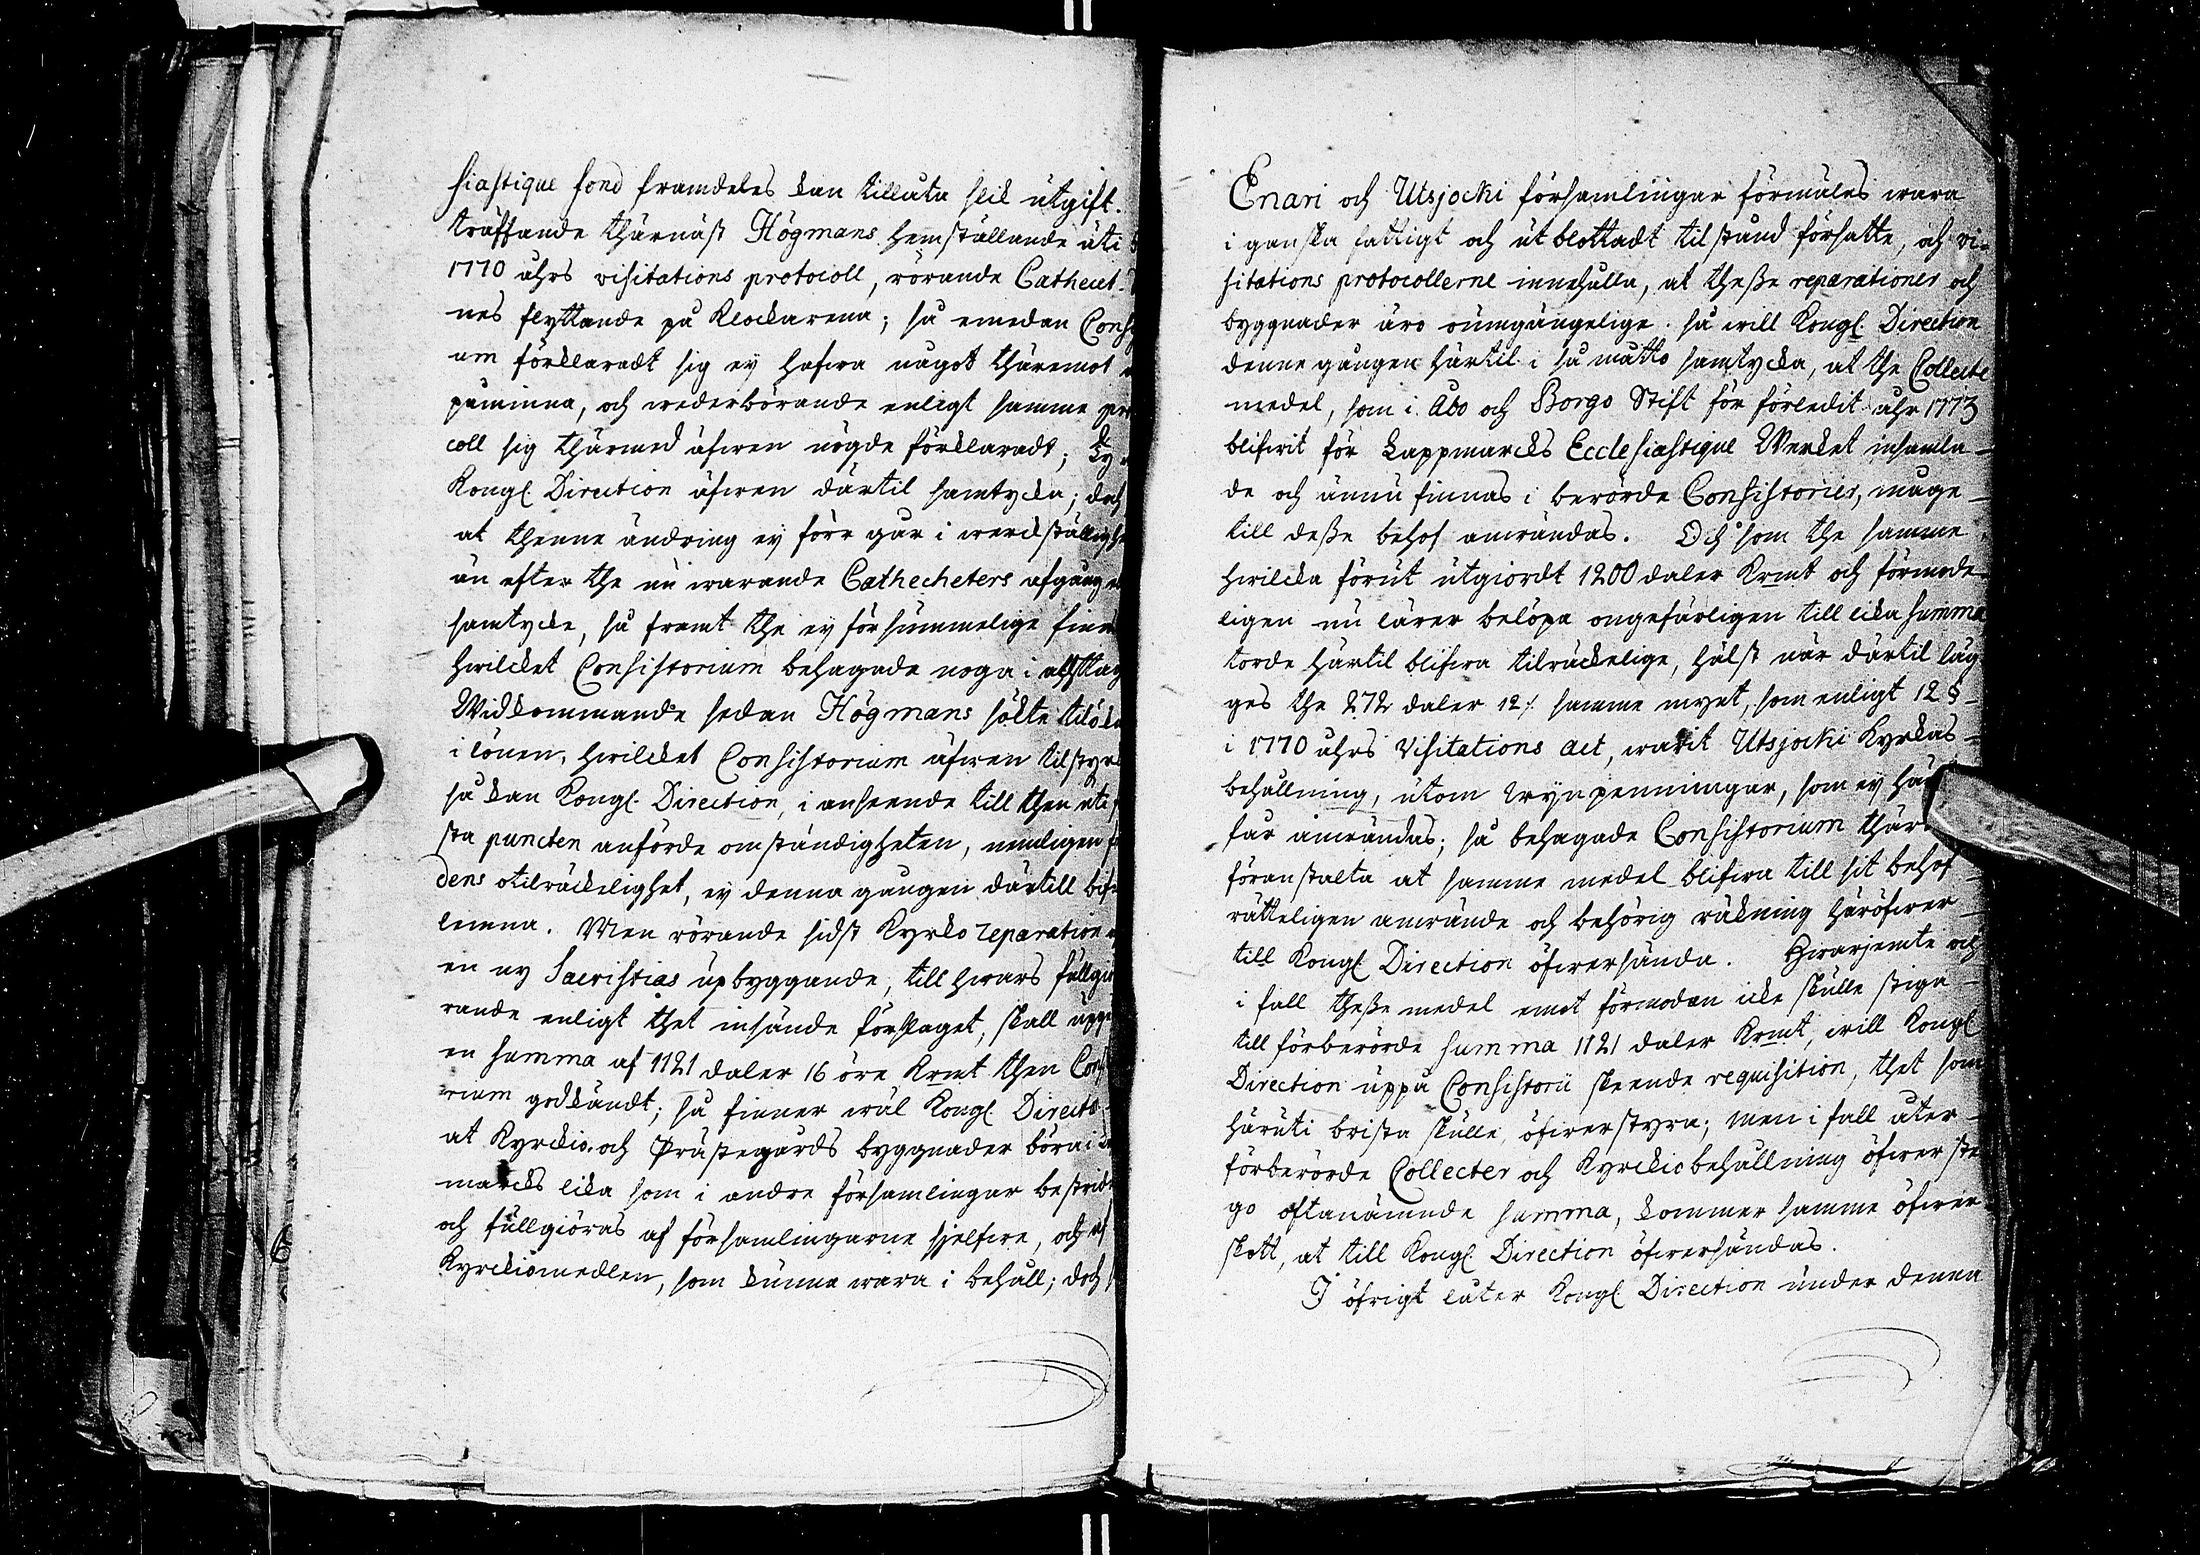 siastique fond framdeles kan tillåta slik utgift.
träffande thärnäst Högmans hemställande uti
1770 åhrs visitations protocoll, rörande Cathecet-
nes flyttande på Klockarena; så emedan Cons
um förklaradt sig ey hafwa något thäremot
påminna, och wederbörande enligt samme pro
coll sig thärmed äfwen nögde förklaradt;
Kongl. Direction äfwen därtil samtycka; doch
at thenne ändring ey förr går i werckställighe
än efter the nu warande Cathecheters afgång
samtycke, så framt the ey försummelige finn
hwilcket Consistorium behagade noga i acht tag
Widkommande sedan Högmans sökte tilök
i lönen, hwilcket Consistorium äfwen tilstyr
så kan Kongl. Direction, i anseende till then
sta puncten anförde omständigheten, nemligen
dens otilräckelighet, ey denna gången därtill bif
lemna. Men rörande sidst Kyrko reparation
en ny Sacristias upbyggande, till hwars fullgiö
rande enligt thet insände förslaget, skall
en summa af 1121 daler 16 öre Krmt then Cons
rium godkändt; så finner wäl Kongl. Directio-
at Kyrckio- och Prästegårds byggnader böra i
marcks lika som i andre församlingar bestrid
och fullgiöras af församlingarne sjelfwe, och af
Kyrckiomedlen, som kunna wara i behåll; doch
Enari och Utsjocki församlingar förmäles wara
i ganska fattigt och utblottadt tilstånd försatte, och vi-
sitations protocollerne innehålla, at thesse reparationer och
byggnader äro oumgängelige. så will Kongl. Direction
denne gången härtil i så måtto samtycka, at the Collecte
medel, som i Åbo och Borgo Stift för förledit åhr 1773
blifwit för Lappmarcks Ecclesiastique Werket insamla-
de och ännu finnas i berörde Consistorier, måge-
till desse behof anwändas. Och som the samme
hwilcka förut utgiordt 1200 daler Krmt och förmode-
ligen nu lärer belöpa ongefärligen till lika summa
torde härtil blifwa tilräckelige, hälst när därtil läg
ges the 272 daler 12 /. samme mynt, som enligt 12 §-
i 1770 åhrs Visitations act, warit Utsjocki Kyrkas-
behållning, utom Wynpenningar, som ey här
får anwändas; så behagade Consistorium thär
föranstalta at samme medel blifwa till sit behof-
rätteligen anwände och behörig räkning häröfwer-
till Kongl. Direction öfwersända. Hwarjemte och
i fall thesse medel emot förmodan icke skulle stiga-
till förberörde summa 1121 daler Krmt, will Kongl.
Direction uppå Consistorii skeende requisition, thet som
häruti brista skulle, öfwerstyra; men i fall åter-
förberörde Collecter och Kyrckiobehållning öfwer ste
go oftanämnde summa, kommer samme öfwer-
skott, at till Kongl. Direction öfwersändas.
I öfrigt låter Kongl. Direction under denna